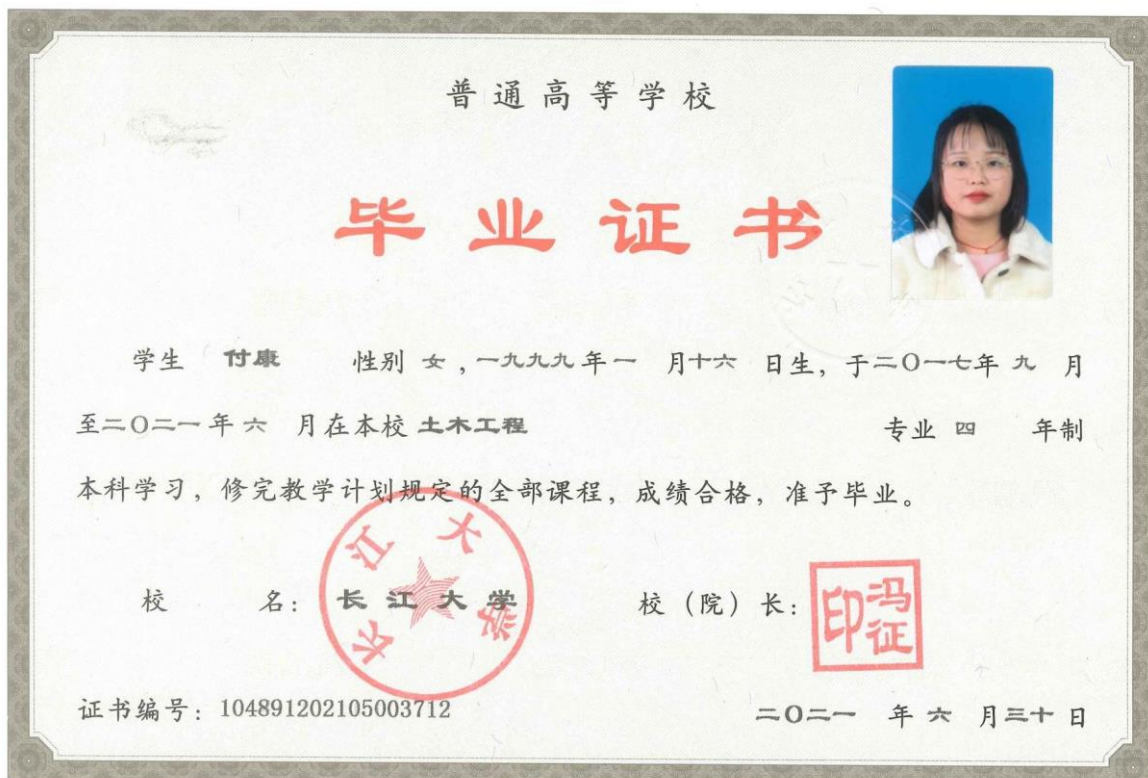 普通高等学校
毕业证书
学生 付康 性别 女，一九九九年一 月十六 日生，于二〇一七年 九 月
至二〇二一年 六 月在本校 土木工程 专业 四 年制
本科学习，修完教学计划规定的全部课程，成绩合格，准予毕业。
校 名：长江大学 校（院）长：
长江大学
冯征印
证书编号：104891202105003712 二〇二一 年 六 月三十 日